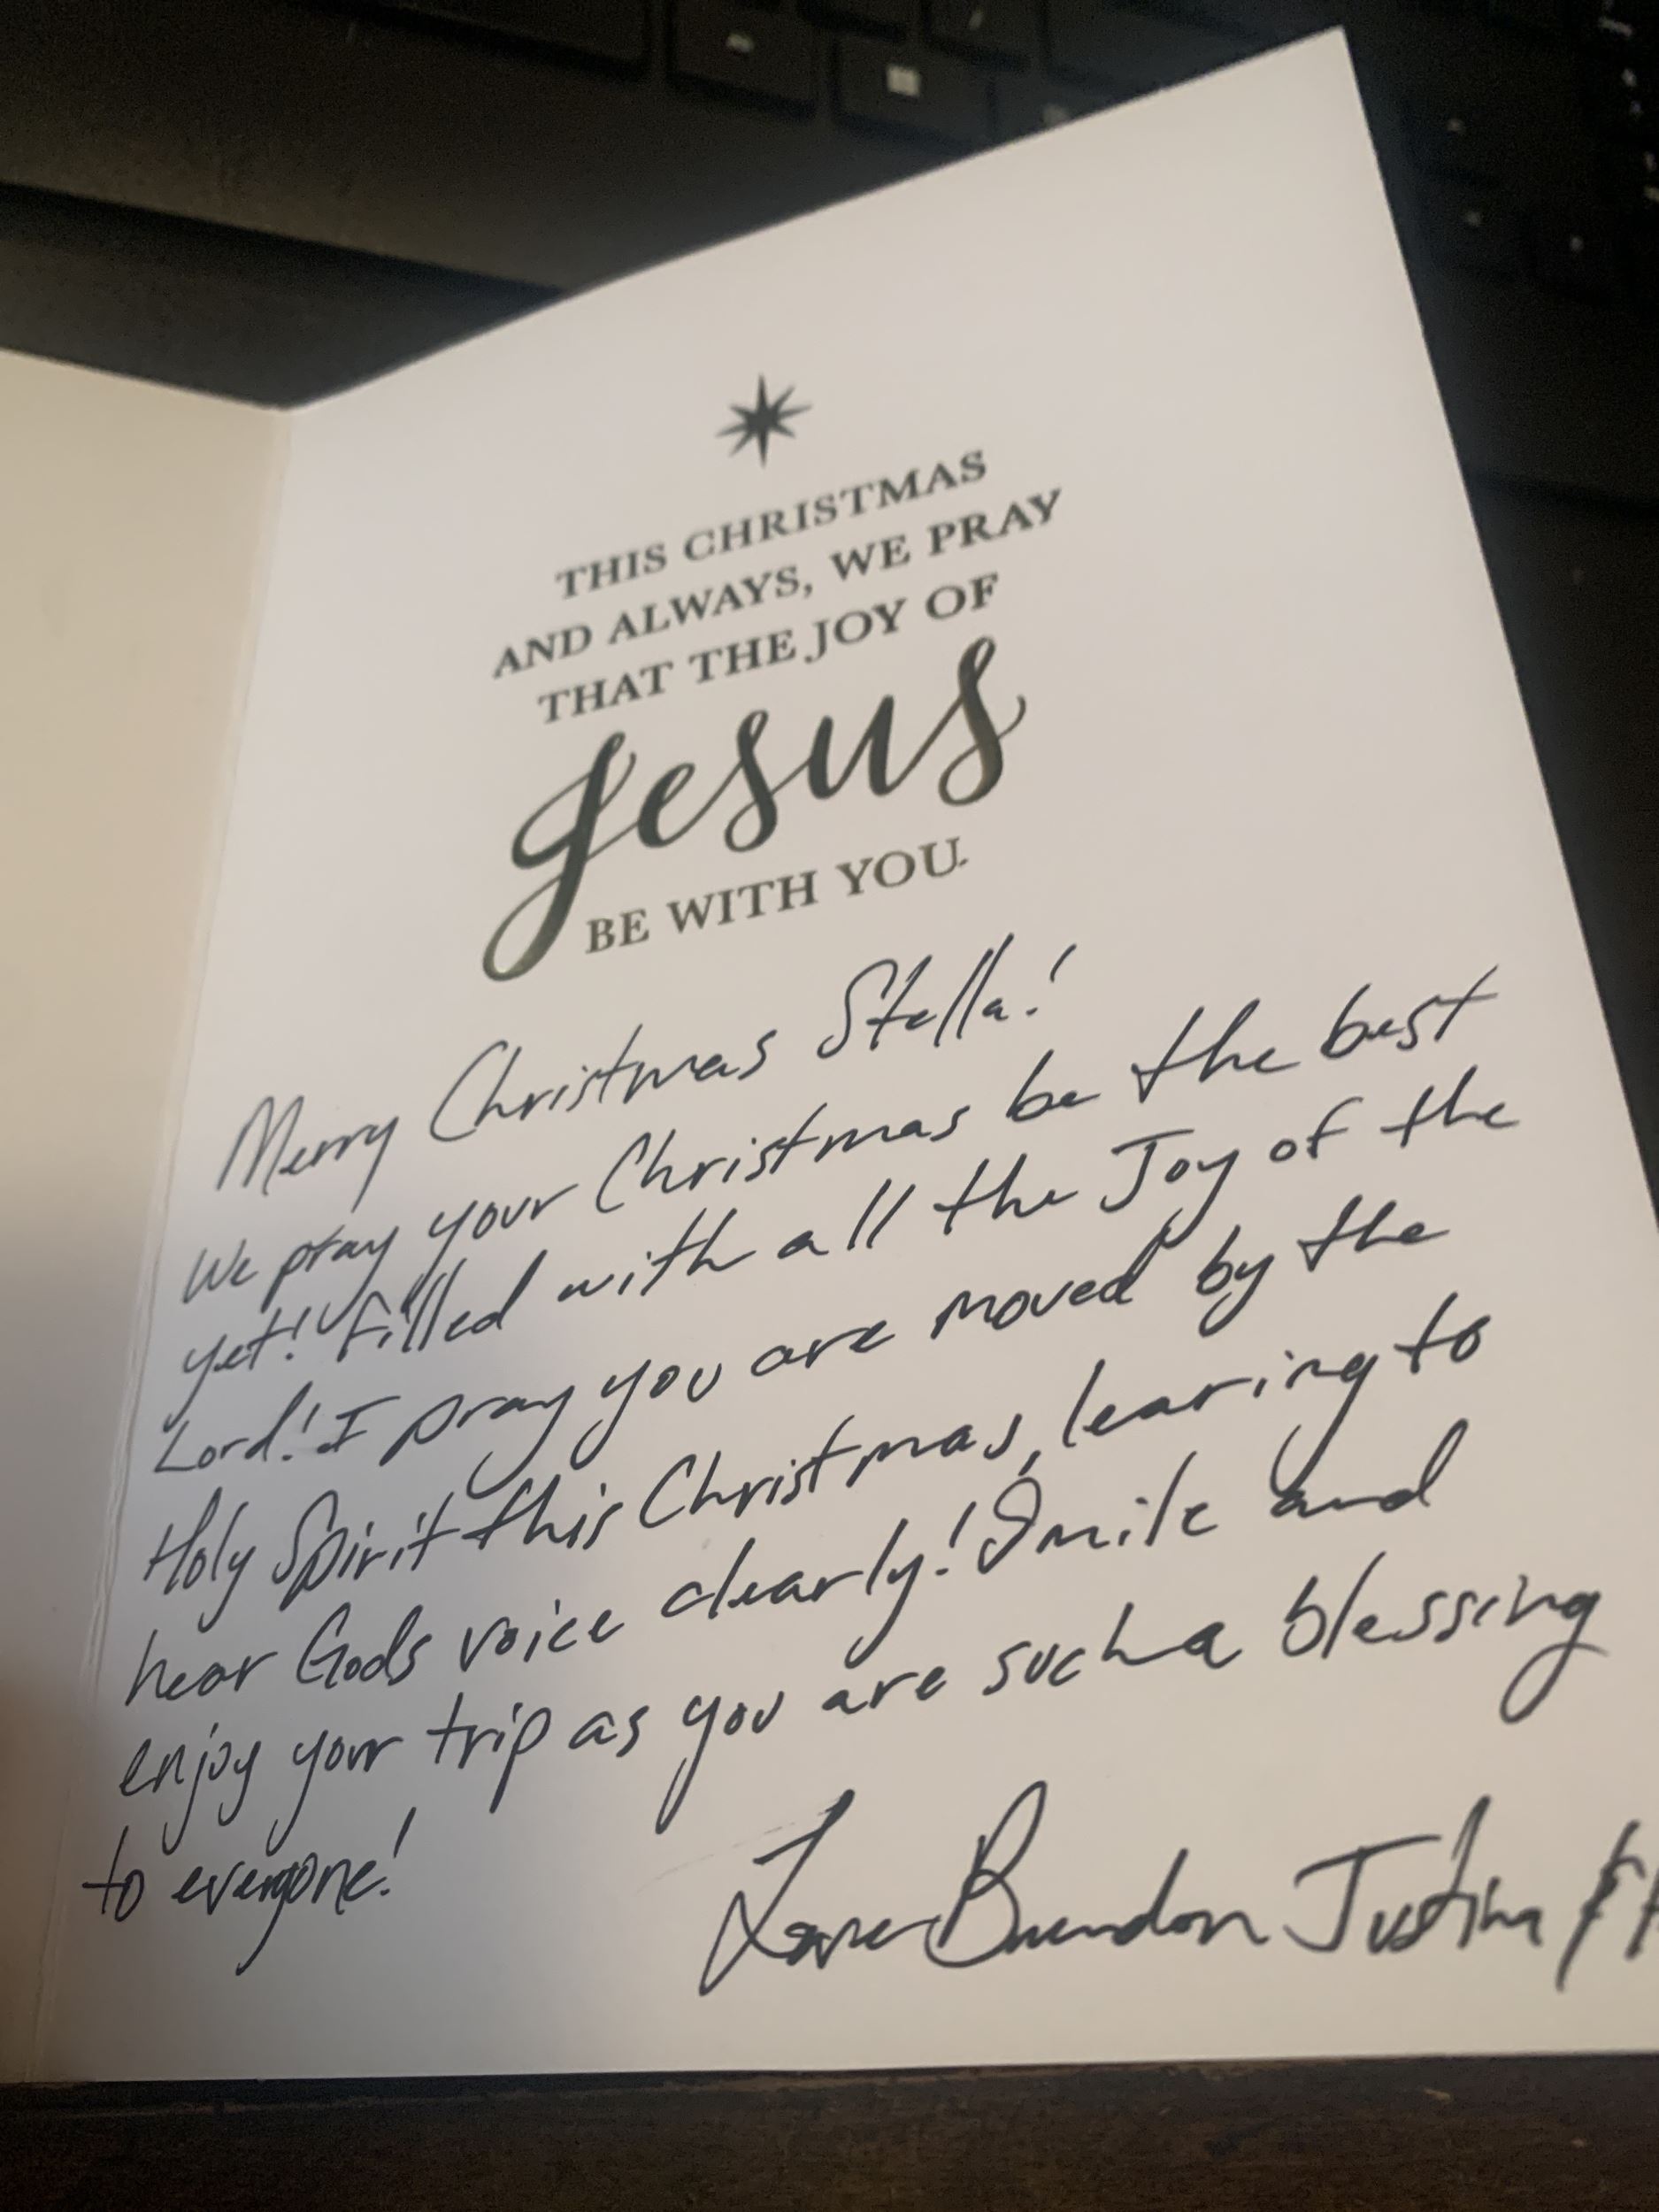 THIS CHRISTMAS
AND ALWAYS, WE PRAY
THAT THE JOY OF
Jesus
BE WITH YOU.
Merry Christmas Stella!
We pray your Christmas be the best
yet! Filled with all the Joy of the
Lord! I pray you are moved by the
Holy Spirit this Christmas, learing to
hear Gods voice clearly! Smile and
enjoy your trip as you are such a blessing
to everyone!
Love Brendon Justina &